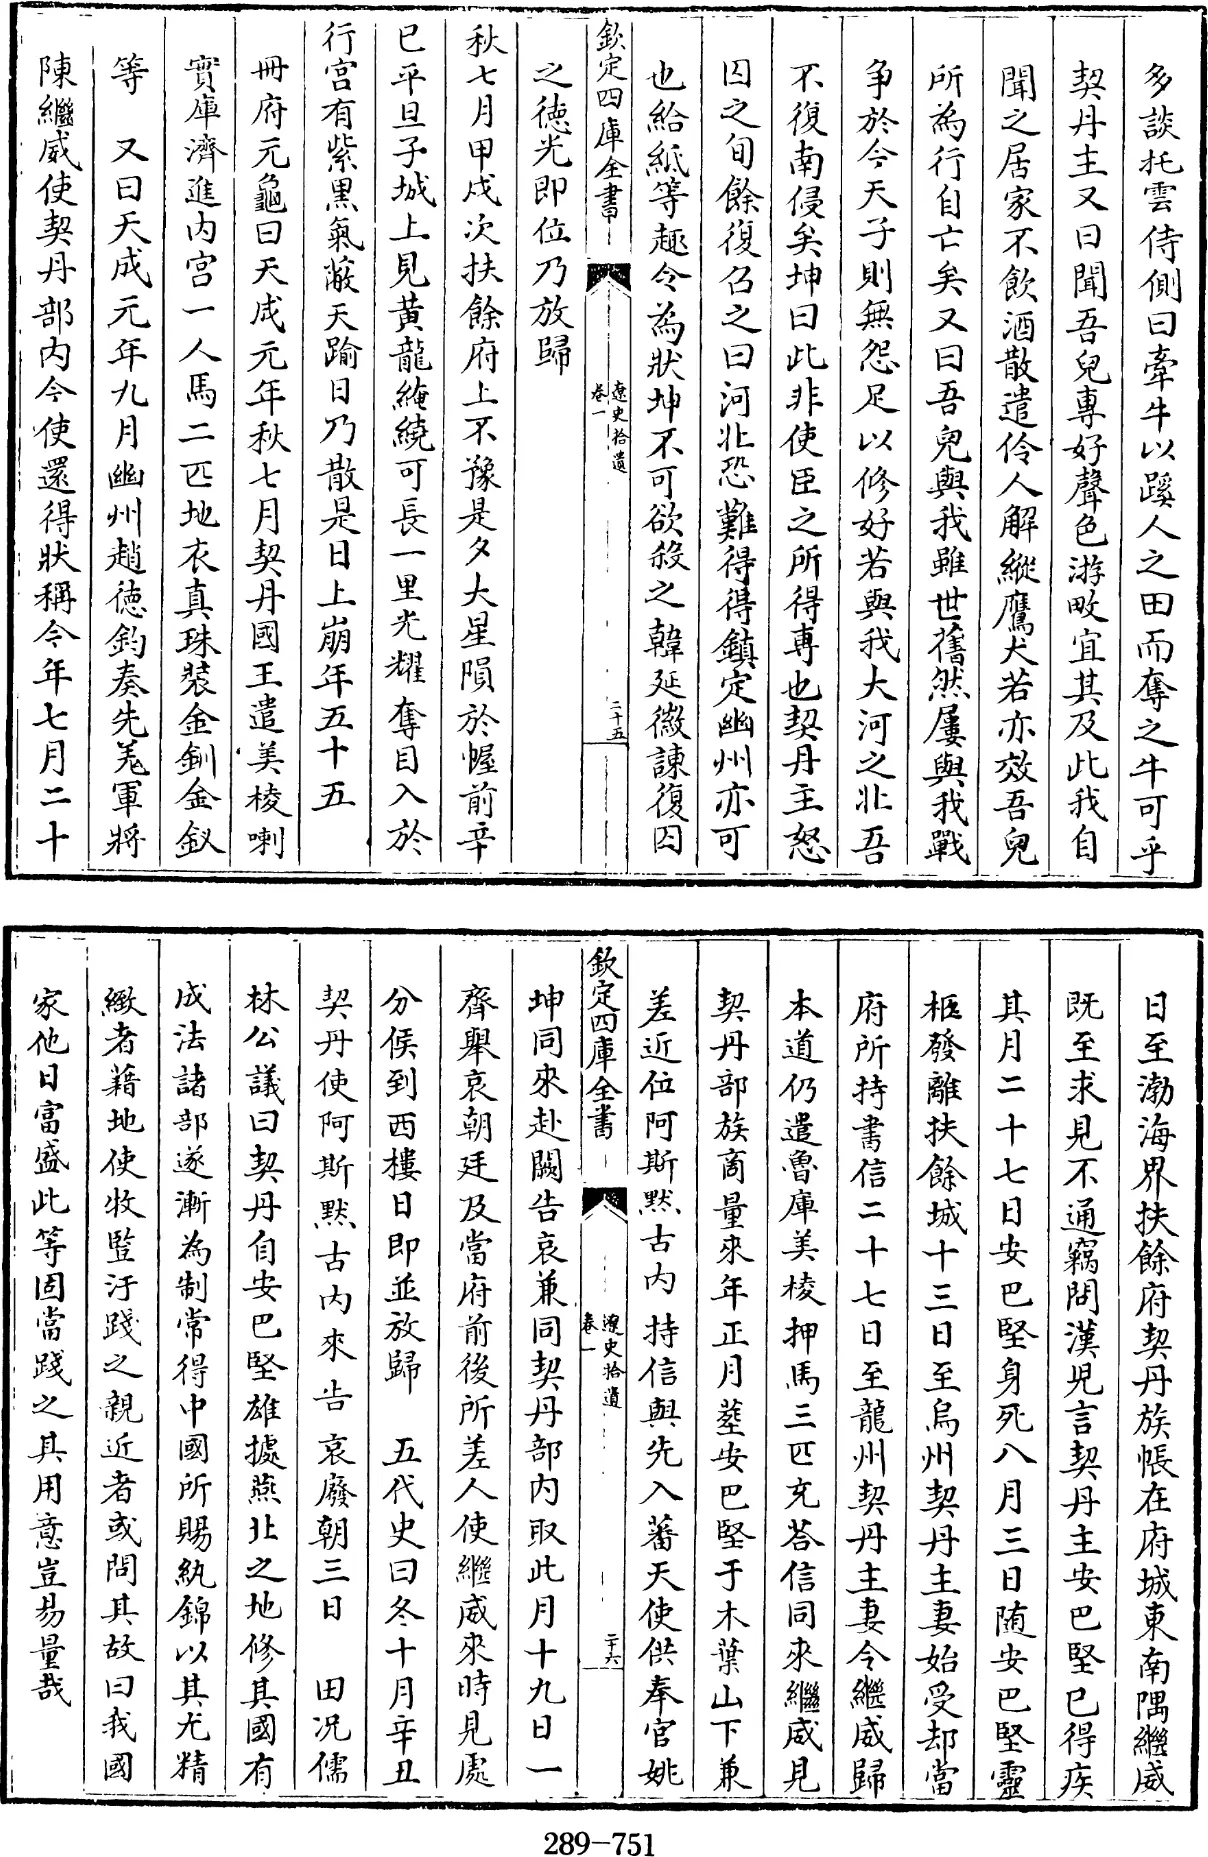 多談托雲侍側曰牽牛以蹊人之田而奪之牛可乎
契丹主又曰聞吾兒專好聲色游畋宜其及此我自
聞之居家不飲酒散遣伶人解縱鷹犬若亦效吾兒
所為行自亡矣又曰吾兒與我雖世舊然屢與我戰
争於今天子則無怨足以修好若與我大河之北吾
不復南侵矣坤曰此非使臣之所得專也契丹主怒
囚之旬餘復召之曰河北恐難得得鎮定幽州亦可
也給紙等趣令為狀坤不可欲殺之韓延徽諫復囚
欽定四庫全書
遼史拾遺
卷一
二十五
之德光即位乃放歸
秋七月甲戌次扶餘府上不豫是夕大星隕於幄前辛
巳平旦子城上見黃龍繞繞可長一里光耀奪目入於
行宮有紫黑氣蔽天踰日乃散是日上崩年五十五
冊府元龜曰天成元年秋七月契丹國王遣美棱喇
實庫濟進内宫一人馬二匹地衣真珠裝金釧金釵
等 又曰天成元年九月幽州趙德鈞奏先羌軍將
陳繼威使契丹部内今使還得狀稱今年七月二十
日至渤海界扶餘府契丹族帳在府城東南隅繼威
既至求見不通竊問漢兒言契丹主安巴堅已得疾
其月二十七日安巴堅身死八月三日随安巴堅靈
柩發離扶餘城十三日至烏州契丹主妻始受却當
府所持書信二十七日至龍州契丹主妻令繼威歸
本道仍遣魯庫美棱押馬三匹充答信同來繼威見
契丹部族商量來年正月葬安巴堅于木葉山下兼
差近位阿斯默古内持信與先入蕃天使供奉官姚
欽定四庫全書
遼史拾遺
卷一
二十六
坤同來赴闕告哀兼同契丹部内取此月十九日一
齊舉哀朝廷及當府前後所差人使繼威來時見處
分侯到西樓日即並放歸 五代史曰冬十月辛丑
契丹使阿斯默古内來告哀廢朝三日 田况儒
林公議曰契丹自安巴堅雄據燕北之地修其國有
成法諸部遂漸為制常得中國所賜紈錦以其尤精
緻者藉地使牧豎汙踐之親近者或問其故曰我國
家他日富盛此等固當踐之其用意豈易量哉
289-751